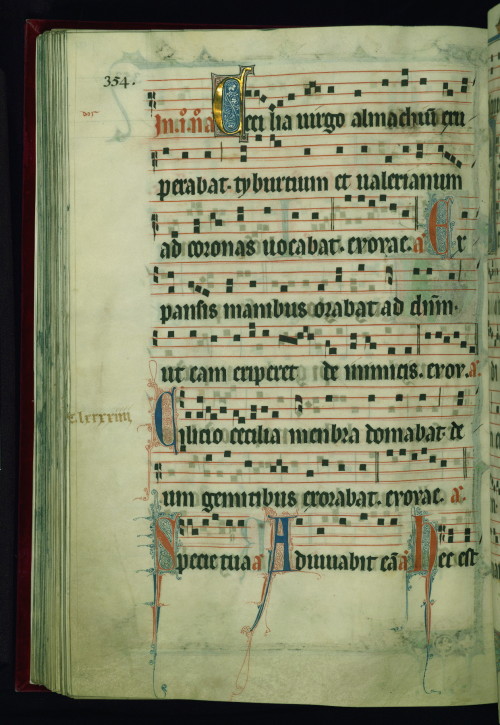 354.
In.i.nͦa Cecilia uirgo almachiū exu
perabat. tyburtium et ualerianum
ad coronas uocabat. evovae. a Ex
pansis manibus orabat ad dn̄m.
ut eam eriperet de inimicis. evov. a
Cilicio cecilia menbra domabat. de
um gemitibus exorabat. evovae. a.
Specie tua a Adiuuabit eā a Hec est